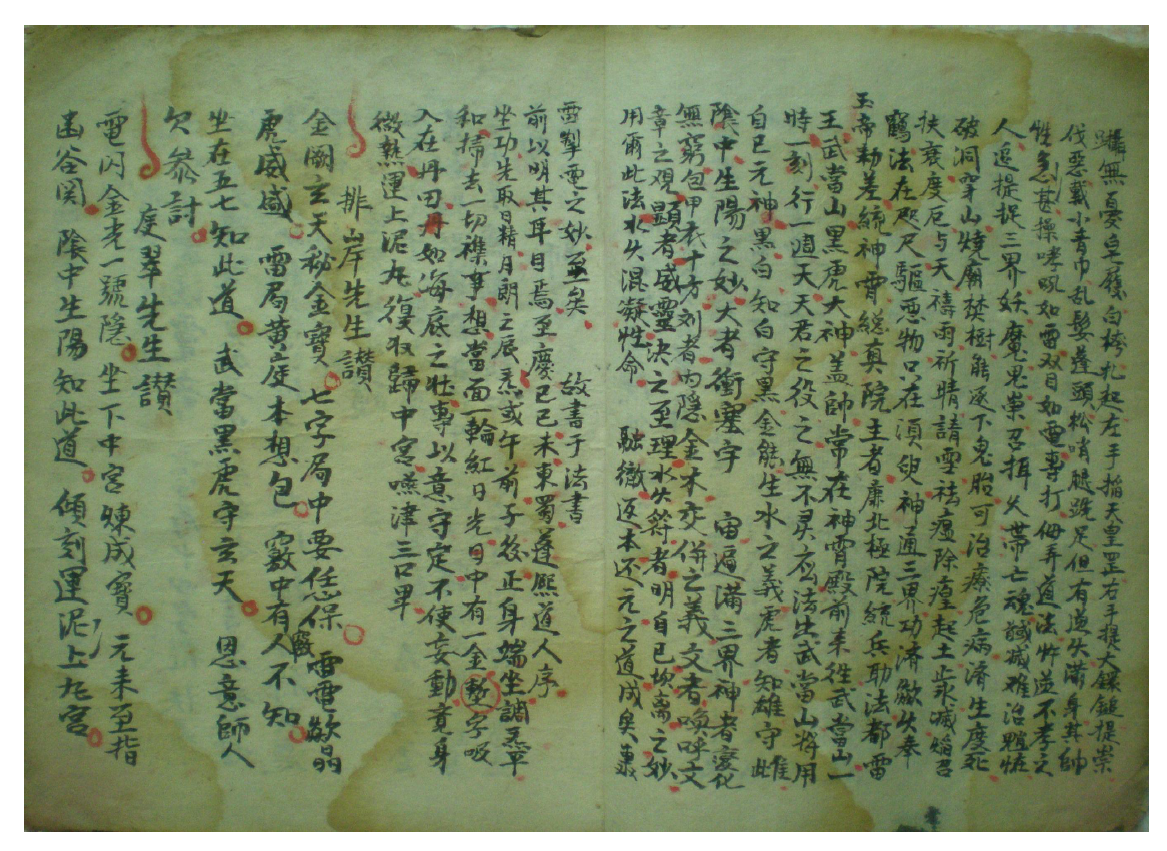 無憂皂履白袴札起左手搯天皇罡右手提大鐵鎚提祟
伐惡戴小青巾乱髮蓬頭松哨腿跣足但有違失滿身其帥
性急甚操哮吼如雷双目如電專打侮弄道法忤逆不孝之
人追提捉三界妖魔鬼祟召攝久滯亡魂誡滅难治魍
破洞穿山燒廟焚樹能逐下鬼胎可治療危病济生度死
扶衰度厄与天禱雨祈晴請雪祛瘟除瘴起土止永滅蝗召
鶴法在咫尺驅惡物只在須臾神通三界功济歛失奉
玉帝勅差統神霄総真院主者廉北極院統兵助法都雷
王武當山黑虎大神盖帥常在神霄殿前来徃武當山一
時一刻行一週天天君之役之無不灵应法出武當山將用
自已元神黑白知白守黑金能生水之義虎者知雄守雌
陰中生陽之妙大者衝塞宇 宙遍滿三界神者变化
無窮包甲衣十方刘者内隱金木交併之義交者喚呼文
章之观顕者威靈决之至理水失符者明自已坎离之妙
用爾此法水火混凝性命 融徹返本还元之道成矣裹
雷掣電之妙至矣 故書于法書
前以明其耳目焉至慶已已未東蜀蓬熙道人序
坐功先取日精月朗之辰焉或午前子後正身端坐調炁平
和掃去一切襍事想當面一輪紅日光日中有一金勅字吸
入在丹田丹如海底之壮專以意守定不使妄動竟身
微熱運上泥丸復収歸中宮嚥津三口畢
排岸先生讃
金闕玄天秘金寶 七字局中要任保 雷電欻
虎威盛 雷局黄庭本想包 竅中有人不知
坐在五七知此道 武當黑虎守玄天 恩意師人
欠叅討
庭翠先生讃
電闪金光一號隱 坐下中宮煉成寶 元来至指
幽谷関 陰中生陽知此道 傾刻運泥上九宮